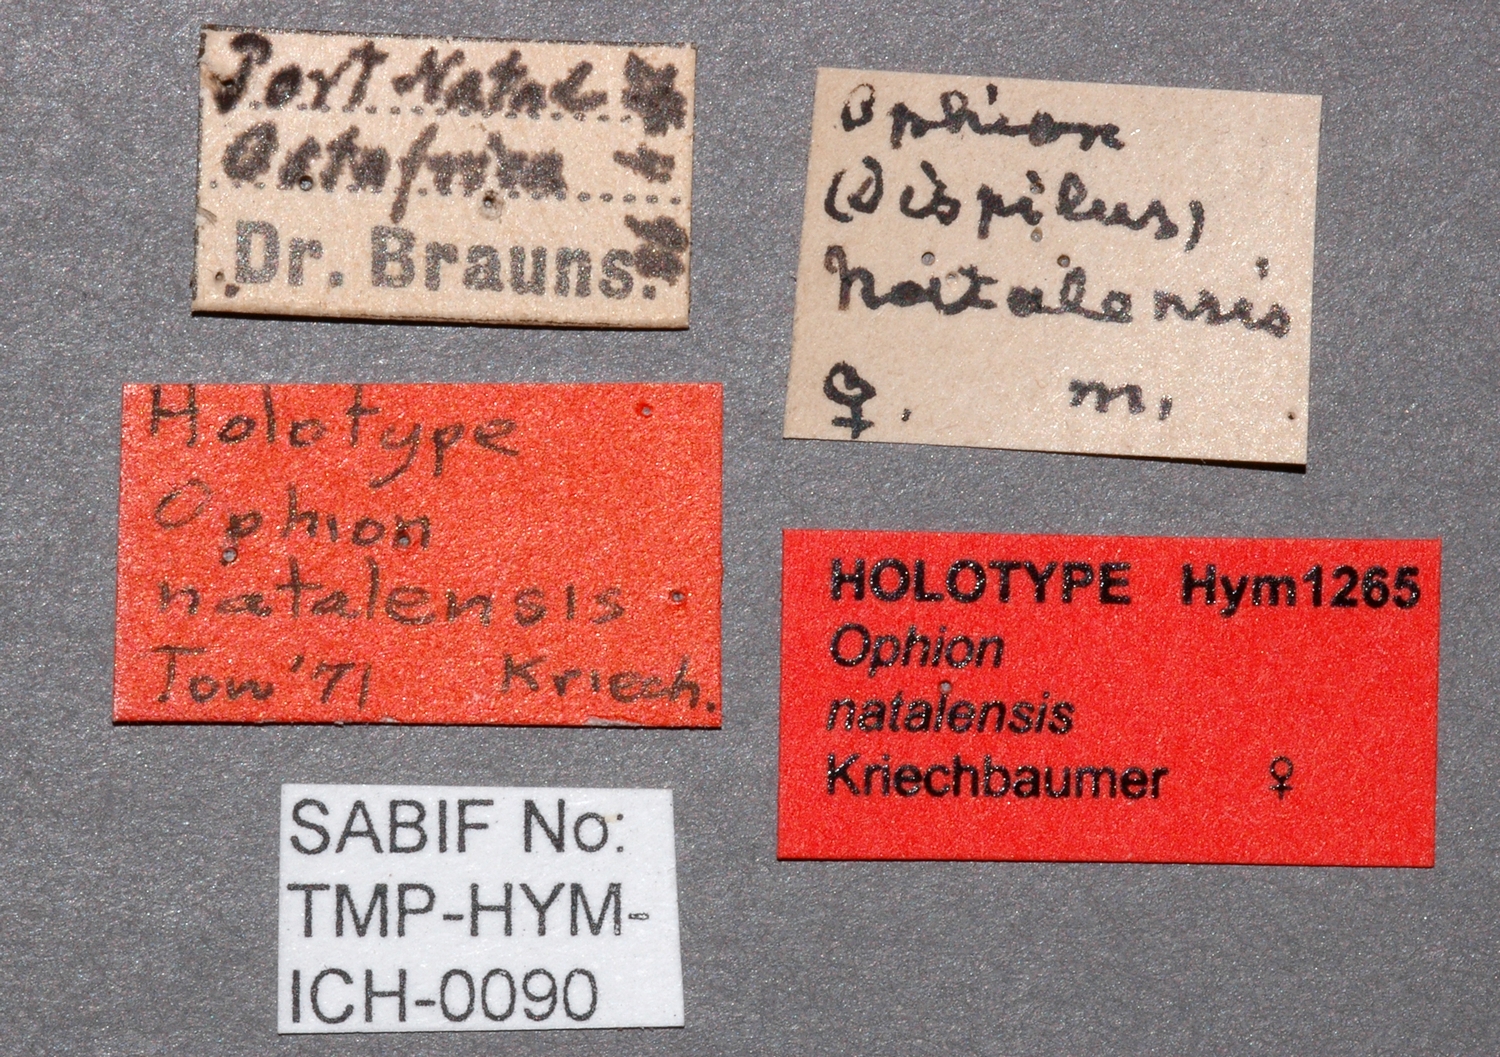 Port Natal
Ostafrika
Dr. Brauns.
Ophion
(Dispilus)
Natalensis
♀. m.
Holotype
Ophion
natalensis
Tow '71 Kriech.
HOLOTYPE Hym1265
Ophion
natalensis
Kriechbaumer ♀
SABIF No:
TMP-HYM-
ICH-0090